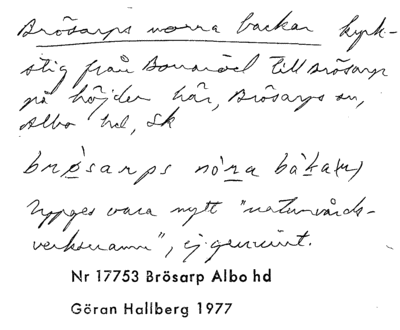 Brösarps norra backar kyrk-
stig från Bonnäröd till Brösarp
på höjder här, Brösarps sn,
Albo hd, Sk
brø̀sarps nò́ra bàka(r)
Uppges vara nytt "naturvårds-
verksnamn", ej genuint.
Nr 17753 Brösarp Albo hd
Göran Hallberg 1977